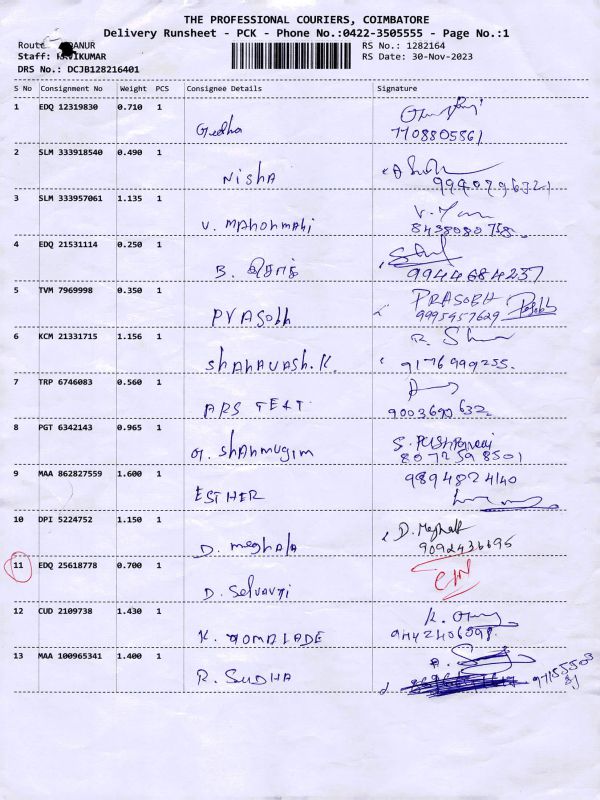 THE PROFESSIONAL COURIERS, COIMBATORE
Delivery Runsheet - PCK - Phone No.:0422-3505555 - Page No.:1
Route
RS No.: 1282164
Staff:
RS Date: 30-Nov-2023
DRS No.: DCJB128216401
S No Consignment No Weight PCS Consignee Details Signature
1 EDQ 12319830 0.710 1 Geetha
7708805561
2 SLM 333918540 0.490 1 Nisha
3 SLM 333957061 1.135 1 V. Manohmani
8438080768
4 EDQ 21531114 0.250 1 B.
9944684237
5 TVM 7969998 0.350 1 Prasobh PRASOBH
9995957629
6 KCM 21331715 1.156 1 Shahavash.K.
9176999255.
7 TRP 6746083 0.560 1 ARS TEXT.
9003690632
8 PGT 6342143 0.965 1 G. Shanmugim S.
8072598501
9 MAA 862827559 1.600 1 ESTHER 9894824140
10 DPI 5224752 1.150 1 D. meghala D. Meghala
9092436695
11 EDQ 25618778 0.700 1 D. Selvavni
12 CUD 2109738 1.430 1 K.
9442406098.
13 MAA 100965341 1.400 1 R. SUDHA